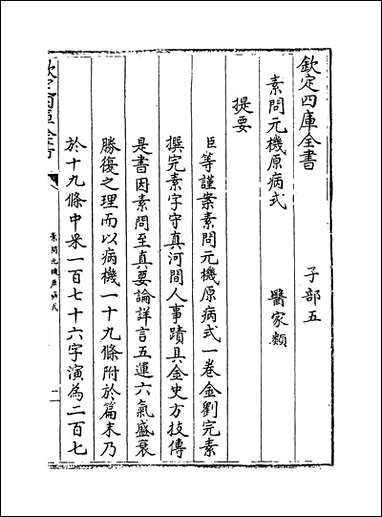 欽定四庫全書
素問元機原病式　子部五　醫家類
提要
臣等謹案素問元機原病式一卷金劉完素
撰完素字守真河間人事蹟具金史方技傳
是書因素問至真要論詳言五運六氣盛衰
勝復之理而以病機一十九條附於篇末乃
於十九條中采一百七十六字演為二百七
欽定四庫全書
素問元機原病式　一